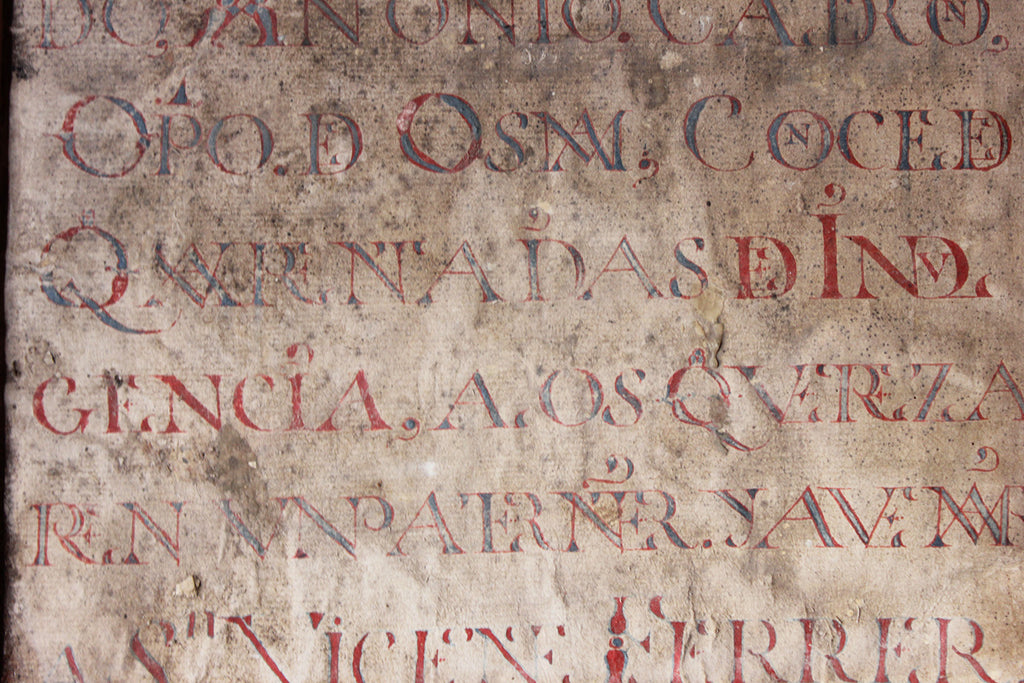 DC, ANTONIO. CADRON,
OPO. D OSMA, CONCEDE
QVARENTA DIAS DE INDVL
GENCIA, A. LOS QVE REZA
REN VN PATER NER. Y AVE MAR
A S. VICENE FERRER